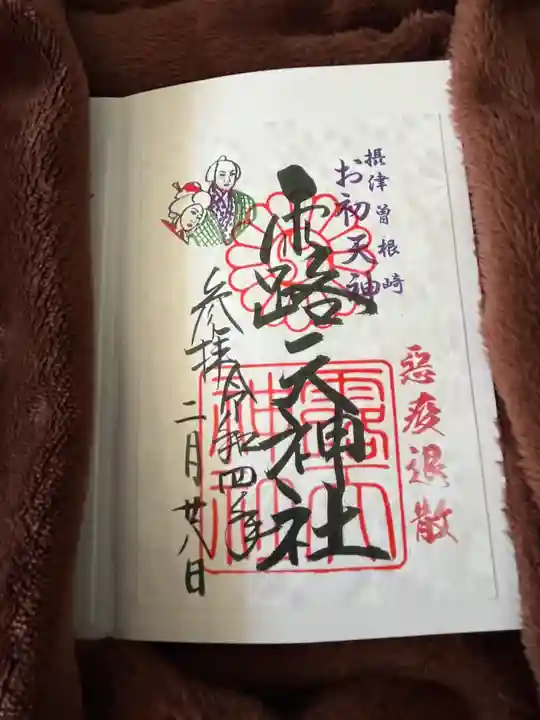 摂津曽根崎
お初天神
悪疫退散
露天神社
参拝令和四年
二月廿八日
露天神社